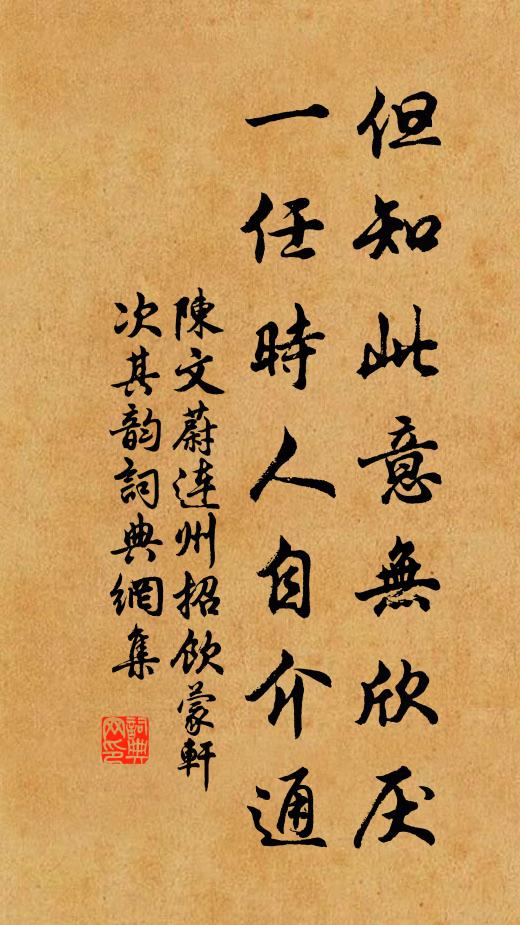 但知此意無欣厌
一任時人自介通
陳文蔚連州招飲蒙軒
次其韵詞典網集
詞典网印